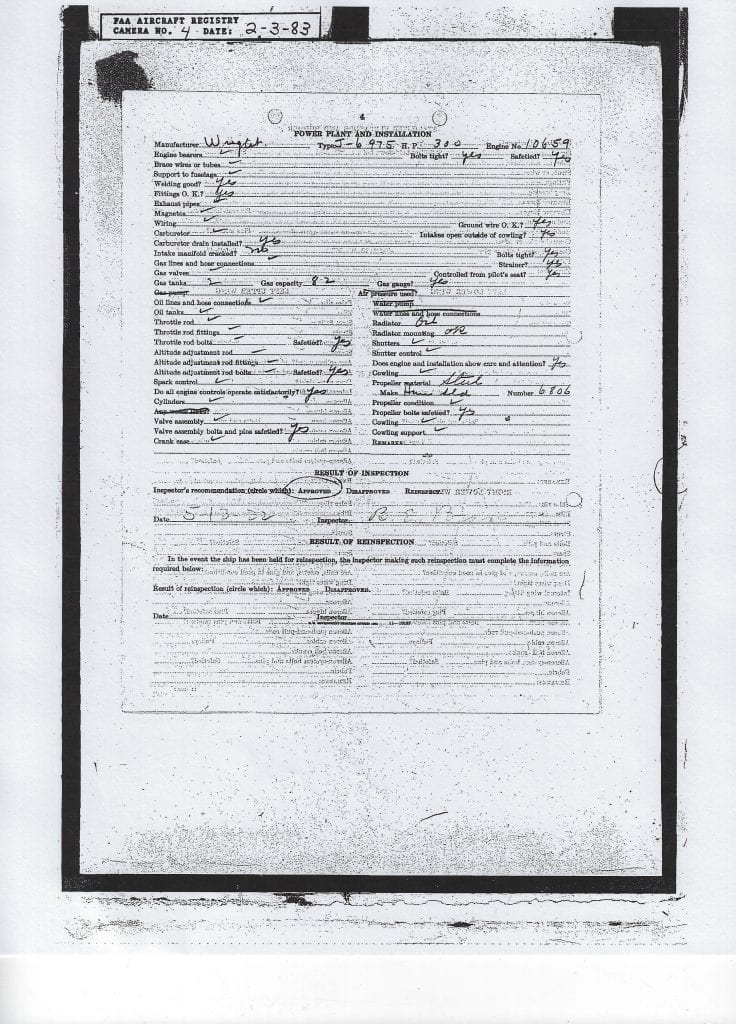 FAA AIRCRAFT REGISTRY
CAMERA NO. 4 DATE: 2-3-83
4
POWER PLANT AND INSTALLATION
Manufacturer Wright Type J-6 975 H. P. 300 Engine No. 10659
Engine bearers ✓ Bolts tight? yes Safetied? yes
Brace wires or tubes ✓
Support to fuselage ✓
Welding good? yes
Fittings O. K.? yes
Exhaust pipes ✓
Magnetos ✓
Wiring ✓ Ground wire O. K.? yes
Carburetor ✓ Intakes open outside of cowling? yes
Carburetor drain installed? yes
Intake manifold cracked? no Bolts tight? yes
Gas lines and hose connections ✓ Strainer? yes
Gas valves ✓ Controlled from pilot's seat? yes
Gas tanks 2 Gas capacity 82 Gas gauge? yes
Gas pump Air pressure used?
Oil lines and hose connections ✓ Water pump
Oil tanks ✓ Water lines and hose connections
Throttle rod ✓ Radiator Oil
Throttle rod fittings ✓ Radiator mounting OK
Throttle rod bolts ✓ Safetied? yes Shutters ✓
Altitude adjustment rod ✓ Shutter control ✓
Altitude adjustment rod fittings ✓ Does engine and installation show care and attention? yes
Altitude adjustment rod bolts ✓ Safetied? yes Cowling ✓
Spark control ✓ Propeller material Steel
Do all engine controls operate satisfactorily? yes Make Number 6806
Cylinders ✓ Propeller condition ✓
Propeller bolts safetied? yes
Valve assembly ✓ Cowling ✓
Valve assembly bolts and pins safetied? yes Cowling support ✓
Crank case ✓ REMARKS:
RESULT OF INSPECTION
Inspector's recommendation (circle which): APPROVED DISAPPROVED REINSPECT
Date 5-13-32 Inspector
RESULT OF REINSPECTION
In the event the ship has been held for reinspection, the inspector making such reinspection must complete the information
required below:
Result of reinspection (circle which): APPROVED DISAPPROVED.
Date Inspector